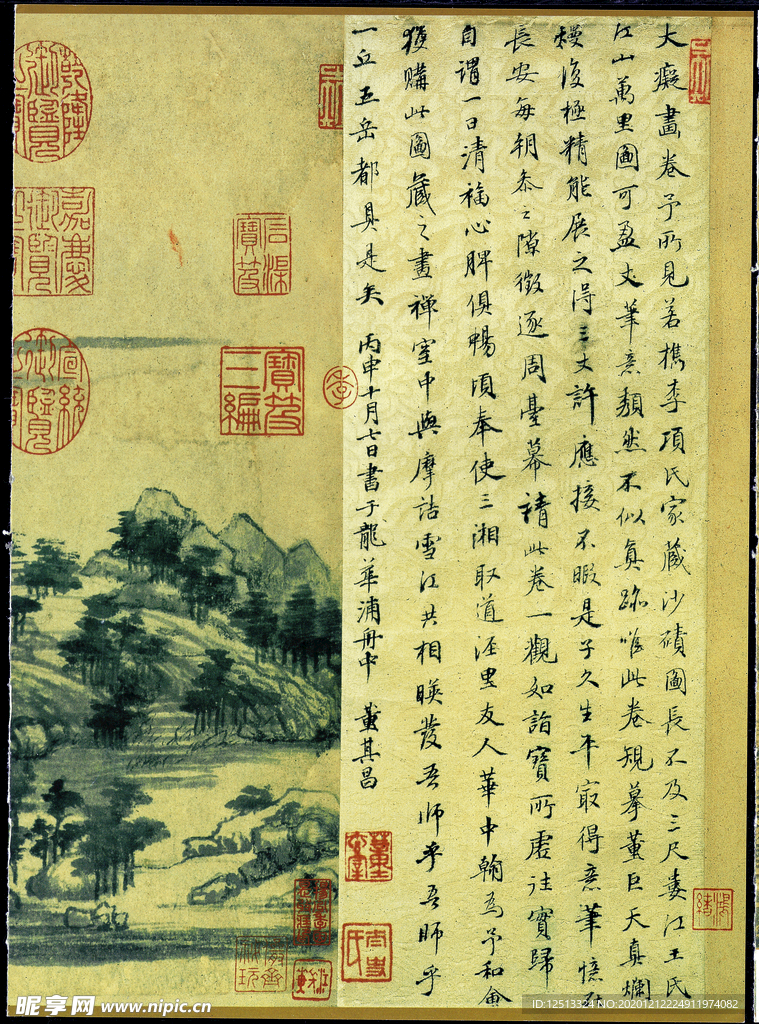 大癡畫卷予所見若檇李項氏家藏沙磧圖長不及三尺婁江王氏
江山萬里圖可盈丈筆意頹然不似真跡唯此卷規摹董巨天真爛
熳復極精能展之得三丈許應接不暇是子久生平最得意筆憶在
長安每朝參之隙徵逐周臺幕請此卷一觀如詣寶所虛往實歸
自謂一日清福心脾俱暢頃奉使三湘取道涇里友人華中翰為予和會
獲購此圖藏之畫禪室中與摩詰雪江共相暎發吾師乎吾師乎
一丘五岳都具是矣 丙申十月七日書于龍華浦舟中 董其昌
乾隆御覽之寶
嘉慶御覽之寶
石渠寶笈
寶笈三編
宣統御覽之寶
董其昌
太史氏
昵享网 www.nipic.cn
ID:12513324 NO:20201212224911974082